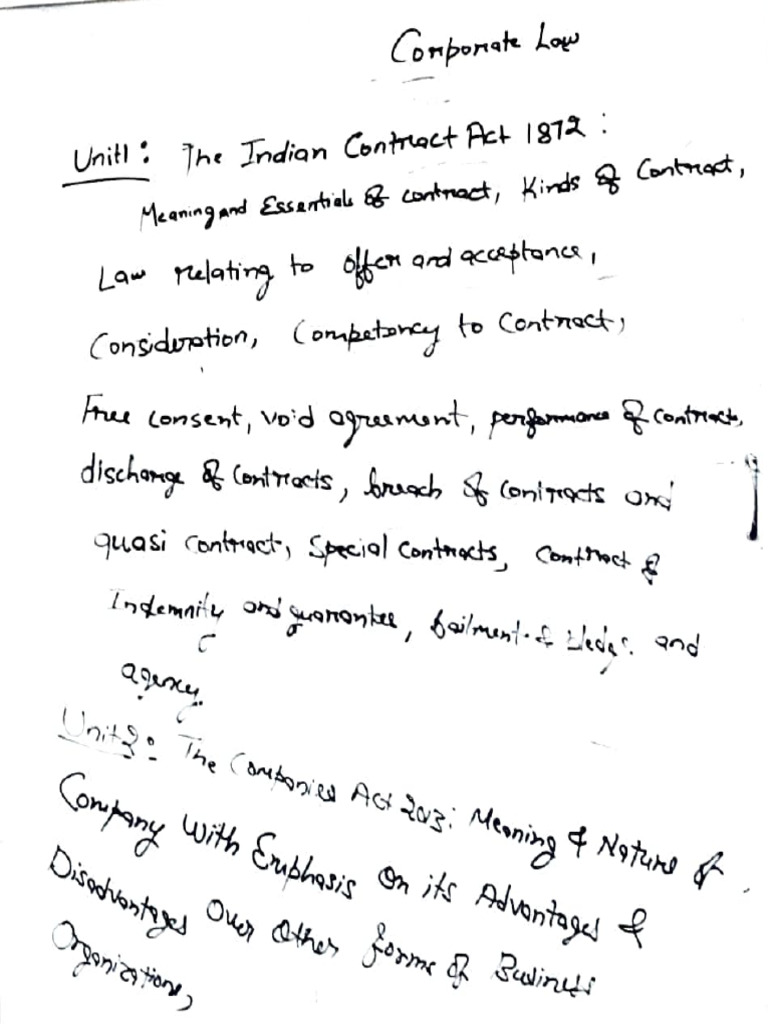 Corporate Law
Unit1: The Indian Contract Act 1872:
Meaning and Essentials of contract, Kinds of Contract,
Law relating to offer and acceptance,
Consideration, Competency to Contract,
Free consent, void agreement, performance of contracts,
discharge of Contracts, breach of Contracts and
quasi contract, Special Contracts, Contract of
Indemnity and guarantee, bailment & Pledge and
agency.
Unit2: The Companies Act 2013: Meaning & Nature of
Company With Emphasis On its Advantages &
Disadvantages Over Other forms of Business
Organizations,